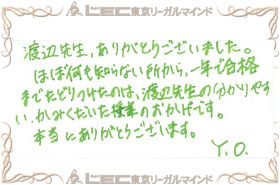 LEC東京リーガルマインド
渡辺先生、ありがとうございました。
ほぼ何も知らない所から、一年で合格
までたどりつけたのは、渡辺先生のわかりやす
い、かみくだいた授業のおかげです。
本当にありがとうございます。
Y.O.
LEC東京リーガルマインド